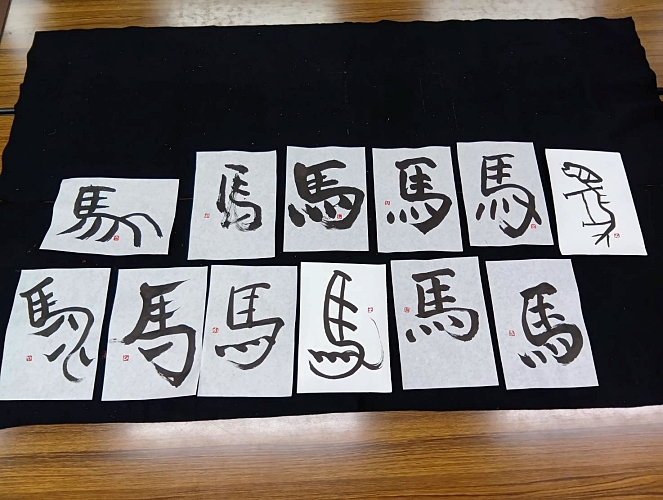 馬 馬 馬 馬 馬
馬 馬 馬 馬 馬 馬